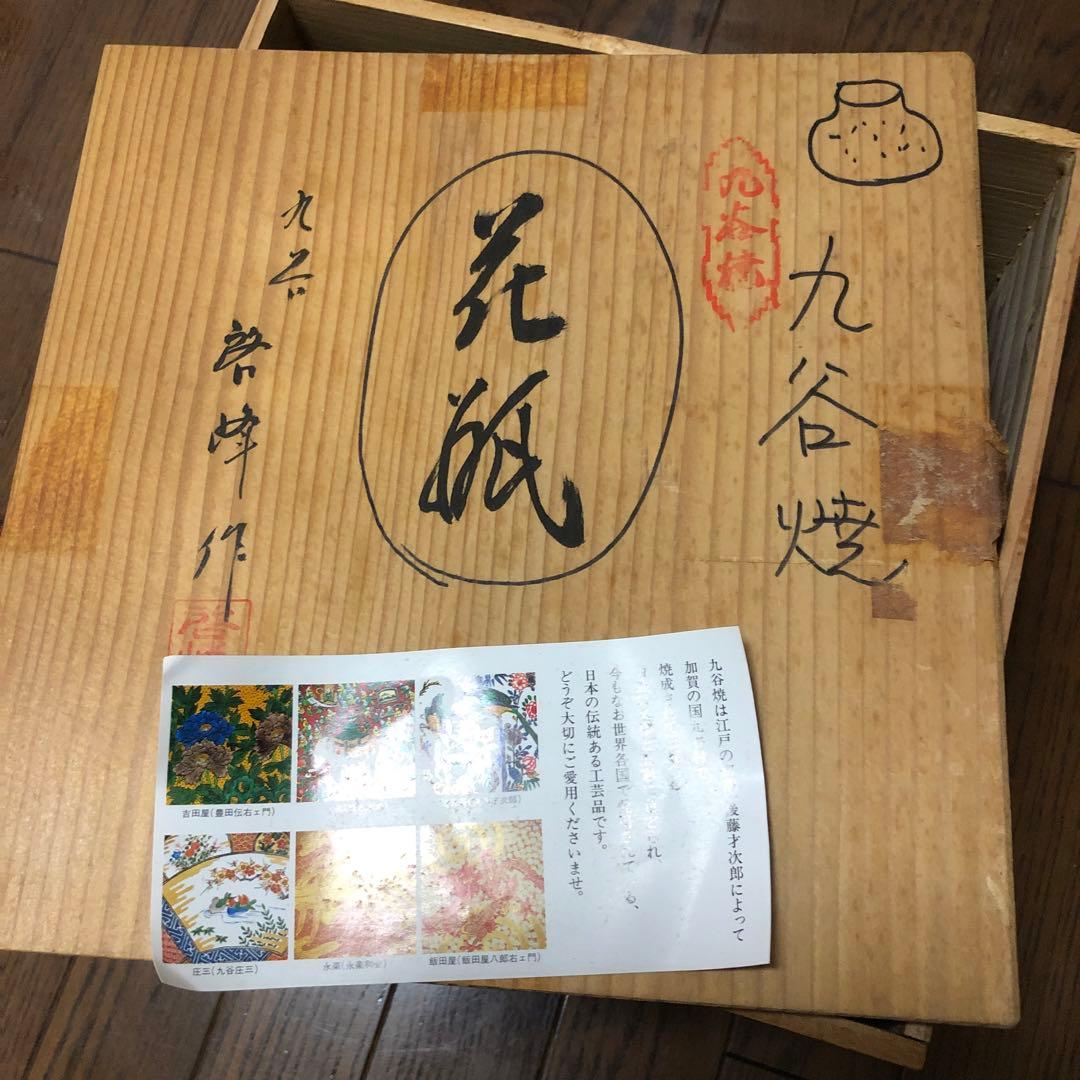 九谷焼
九谷焼
花瓶
九谷
啓峰作
啓
九谷焼は江戸の 後藤才次郎によって
加賀の国
焼成
今もなお世界各国で
日本の伝統ある工芸品です。
どうぞ大切にご愛用くださいませ。
吉田屋(豊田伝右ェ門)
庄三(九谷庄三)
永楽(永楽和全)
飯田屋(飯田屋八郎右ェ門)